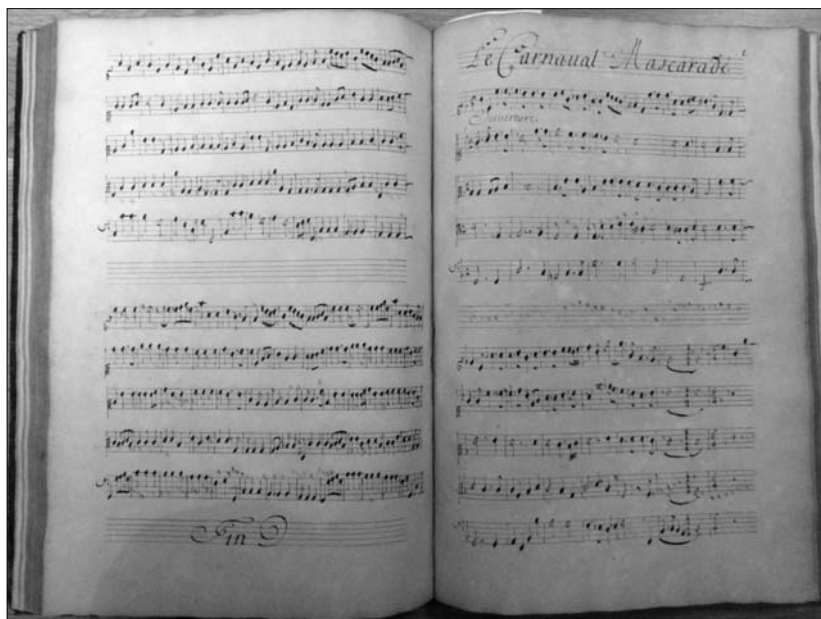 Fin
Le Carnaual Mascarade
Ouuerture.